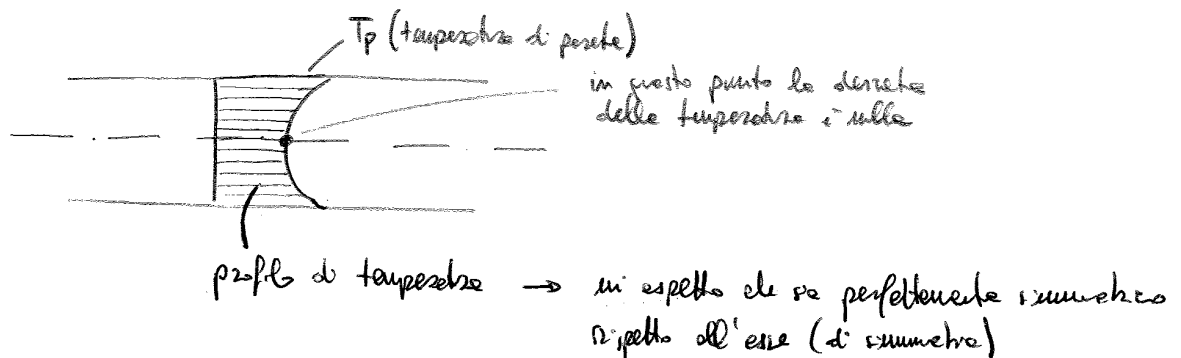 Tp (temperatura di parete)
in questo punto la derivata
della temperatura è nulla
profilo di temperatura → mi aspetto che sia perfettamente simmetrico
rispetto all'asse (di simmetria)